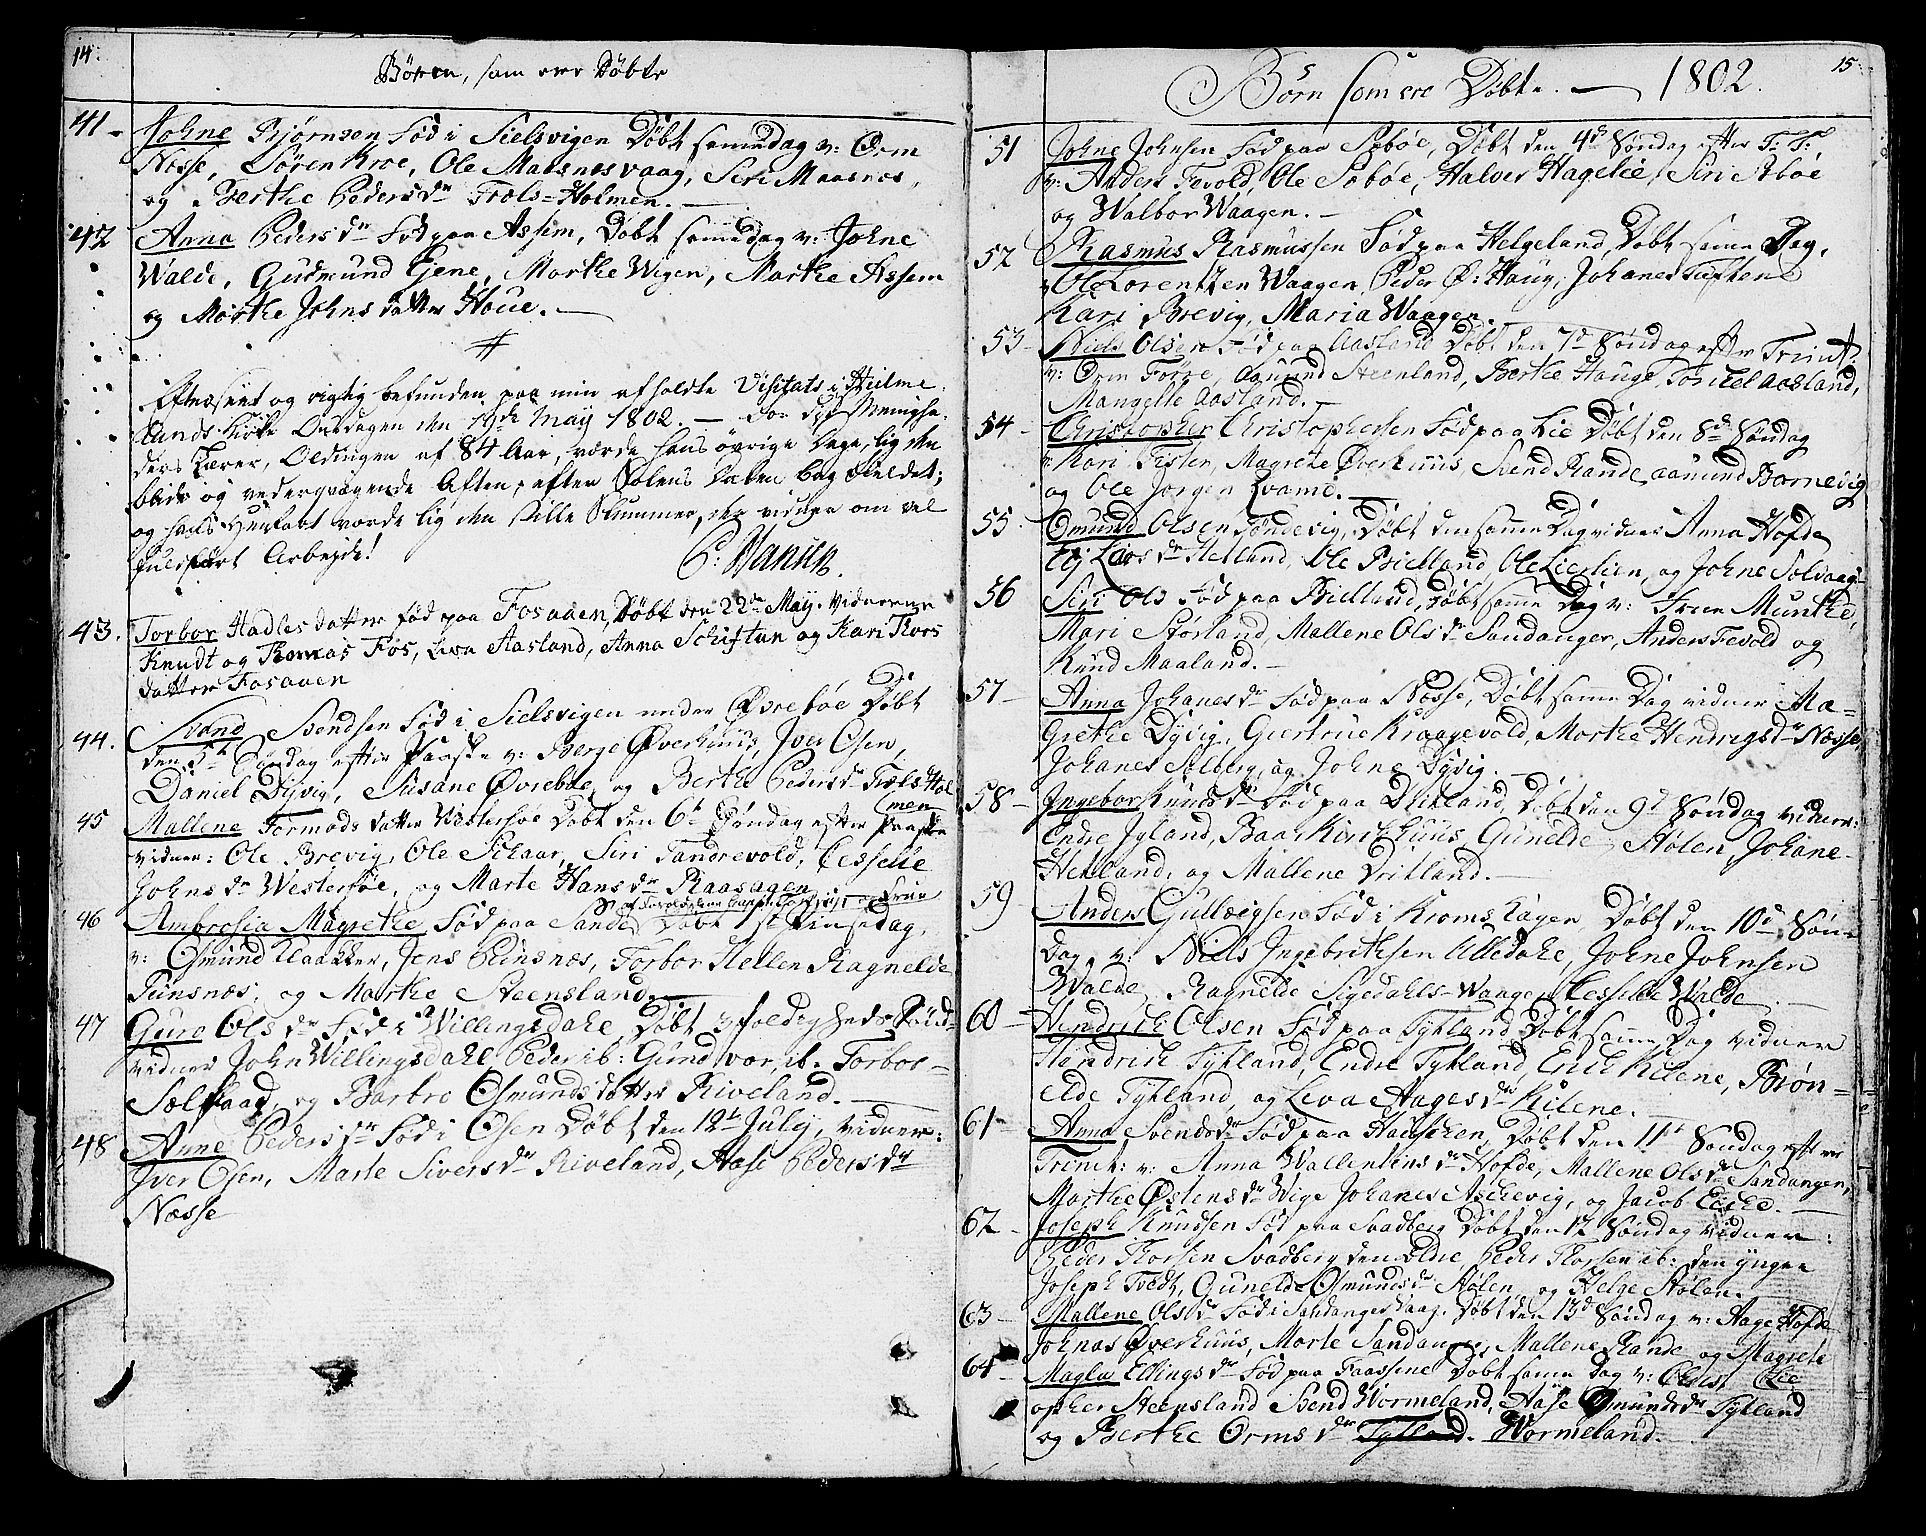 14.
Børen, som ere Døbte
41 - Johne Bjørnsen Fød i Sielsvigen Døbt samme dag v: Orm
Næsse, Søren Kroe, Ole Maasnesvaag, Siri Maasnæs,
og Berthe Peders dr Træls=Holmen. -
42 Anna Peders dr Fød paa Assem, Døbt samme dag v: Johne
Walde, Gudmund Gene, Marthe Wigen, Marthe Assem
og Marthe Johns datter Houe. -
Efterseet og rigtig befunden paa min afholdte Visitats i Hielme-
lands Kirke Onsdagen den 19de May 1802. - For
ders Lærer, Oldingen af 84 Aar, vorde hans øvrige Dage, lig den
blide og vedergvægende Aften, efter Solens Dalen bag Fieldet;
og hans Henfart vorde lig den stille Slummer, der vidner om vel
fuldført Arbejde!
43. Torbor Hadles datter fød paa Fosaaen, Døbt den 22de May. Vidnerne
Knudt og Thomas Fos, Liva Aasland, Anna Schiftun og Kari Thors
datter Fosaaen
44. Svend Svendsen Fød i Sielsvigen under Øvrebøe Døbt
den 5te Søndag efter Paaske v: Berge Øverhuus, Iver Osen,
Daniel Dyvig, Susane Øvrebøe, og Berthe Peders dr Træls Hol
men
45 Mallene Tormods datter Westersøe Døbt den 6te Søndag efter Paaske
vidner: Ole Brevig, Ole Schaar, Siri Tandrevold, Cesselie
Johns dr Westersøe, og Marte Hans dr Raasagen
46 Ambrosia Magrethe Fød paa Sande Døbt 1ste Pinsedag,
v: Osmund Klackker, Jens Pundsnæs, Torbor Hellen Ragnelde
Punsnæs, og Marthe Steensland. -
47 Guro Ols dr Fød i Willingsdahl Døbt 3foldigheds Sønd-
vidner John Willingsdahl Peder ib: Gundvor, ib. Torbor -
Sælffaad, og Barbro Osmunds datter Riveland. -
48 Anne Peders dr Fød i Osen Døbt den 12te July, vidner:
Iver Osen, Marte Sivers dr Riveland, Aase Peders dr
Næsse
15
Børn som ere Døbte. - 1802.
51 Johne Johnsen Fød paa Sæbøe, Døbt den 4de Søndag efter T: T:
v: Anders Fevold, Ole Sæbøe, Halver Hagelie, Siri Sæbøe
og Walbor Waagen. -
52 Rasmus Rasmussen Fød paa Helgeland, Døbt samme Dag,
v Ole Lorentzen Waagen, Peder Ø: Haug, Johanes Tuftene
Kari Brevig, Maria Waagen. -
53 - Niels Olsen Fød paa Aasland Døbt den 7de Søndag efter Trint:
v: Orm Forre, Aamund Steenland, Berthe Hauge, Torkel Aasland,
Mangelle Aasland. -
54 - Christopher Christophersen Fød paa Lie Døbt den 8de Søndag
v: Kari Fister, Magrete Øverhuus Svend Rande, Aamund Barnevig
og Ole Jørgen Qvame. -
55 Omund Olsen Tøndevig, Døbt den samme Dag vidner Anna Hofde
Eli Lars dr Helland, Ole Bielland, Ole Lierlien, og Johne Solvaag
56 Siri Ols Fød paa Bielland, Døbt samme Dag v: Fruen Munthe,
Mari Størland, Mallene Ols dr Sandanger, Anders Fevold og
Knud Maaland. -
57 - Anna Johanes dr Fød paa Næsse, Døbt samme Dag vidner Ma=
Grethe Dyvig, Giertrue Kraagevold, Marthe Hendrigs dr Næsse
Johanes Aalberg, og Johne Dyvig. -
58 - Ingebor Knuds dr Fød paa Dritland, Døbt den 9de Søndag vidner:
Endre Jyland, Baar Kirckhuus, Gunelde Stølen, Johane-
Helland, og Mallene Dritland. -
59 Anders Gulleigsen Fød i Kromshagen Døbt den 10de Søn-
Dag, v: Niels Ingebrithsen Ulledahl, Johne Johnsen
Walde, Ragnelde Sigedahls-Wange, Cesselie Walde -
60 - Hendrich Olsen Fød paa Tytland Døbt samme Dag vidner
Hendrich Tytland, Endre Tytland, Erich Kilene, Brøn-
elde Tytland, og Leva Aages dr Kilene. -
61 - Anna Svends dr Fød paa Hauschen, Døbt den 11te Søndag efter
Trint: v: Anna Wallentins dr Hofde, Mallene Ols dr Sandanger,
Marthe Østens dr Wige Johanes Aschevig, og Jacob Eiche. -
62 - Joseph Knudsen Fød paa Svadberg Døbt den 12 Søndag vidner:
Peder Thorsen Svadberg den Eldre, Peder Thorsen ib: den yngere
Joseph Tvedt, Gunelde Osmunds dr Stølen, og Helge Stølen. -
63 - Mallene Ols dr Fød i Sandanger Vaag. Døbt den 13de Søndag v: Aage Hofde
Johnas Øverhuus, Marte Sandanger, Mallene Rande og Magrete
64 - Magla Ellings dr Fød paa Faassene Døbt samme Dag v:
opher Steensland Svend Wormeland, Aase Omunds dr Tytland
og Berthe Orms dr Tytland. Wormeland. -